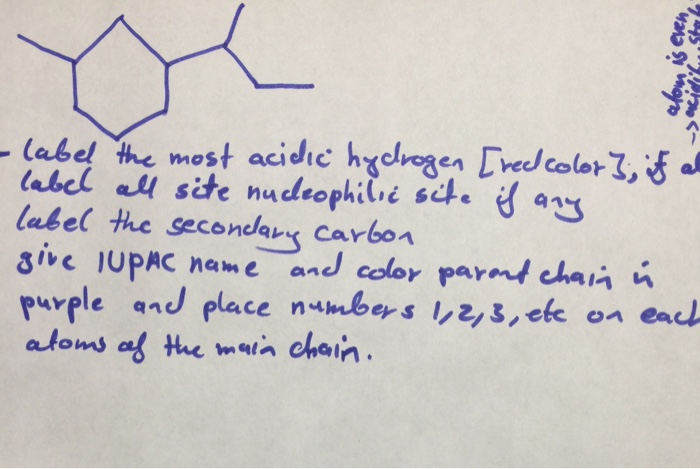 - label the most acidic hydrogen [red color], if
label all site nucleophilic site if any
label the secondary carbon
give IUPAC name and color parent chain in
purple and place numbers 1,2,3, etc on each
atoms of the main chain.
atom is even